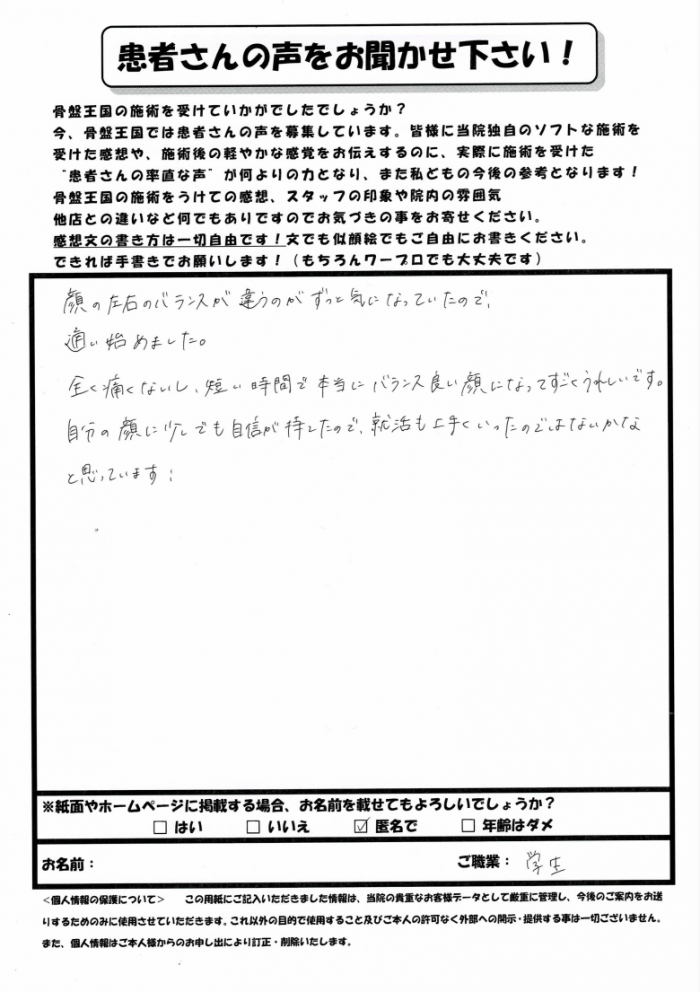 患者さんの声をお聞かせ下さい！
骨盤王国の施術を受けていかがでしたでしょうか？
今、骨盤王国では患者さんの声を募集しています。皆様に当院独自のソフトな施術を
受けた感想や、施術後の軽やかな感覚をお伝えするのに、実際に施術を受けた
"患者さんの率直な声"が何よりの力となり、また私どもの今後の参考となります！
骨盤王国の施術をうけての感想、スタッフの印象や院内の雰囲気
他店との違いなど何でもありですのでお気づきの事をお寄せください。
感想文の書き方は一切自由です！文でも似顔絵でもご自由にお書きください。
できれば手書きでお願いします！（もちろんワープロでも大丈夫です）
顔の左右のバランスが違うのがずっと気になっていたので、
通い始めました。
全く痛くないし、短い時間で本当にバランス良い顔になってすごくうれしいです。
自分の顔に少しでも自信が持てたので、就活も上手くいったのではないかな
と思っています！
※紙面やホームページに掲載する場合、お名前を載せてもよろしいでしょうか？
□ はい □ いいえ ☑ 匿名で □ 年齢はダメ
お名前： ご職業： 学生
＜個人情報の保護について＞ この用紙にご記入いただきました情報は、当院の貴重なお客様データとして厳重に管理し、今後のご案内をお送
りするためのみに使用させていただきます。これ以外の目的で使用すること及びご本人の許可なく外部への開示・提供する事は一切ございません。
また、個人情報はご本人様からのお申し出により訂正・削除いたします。